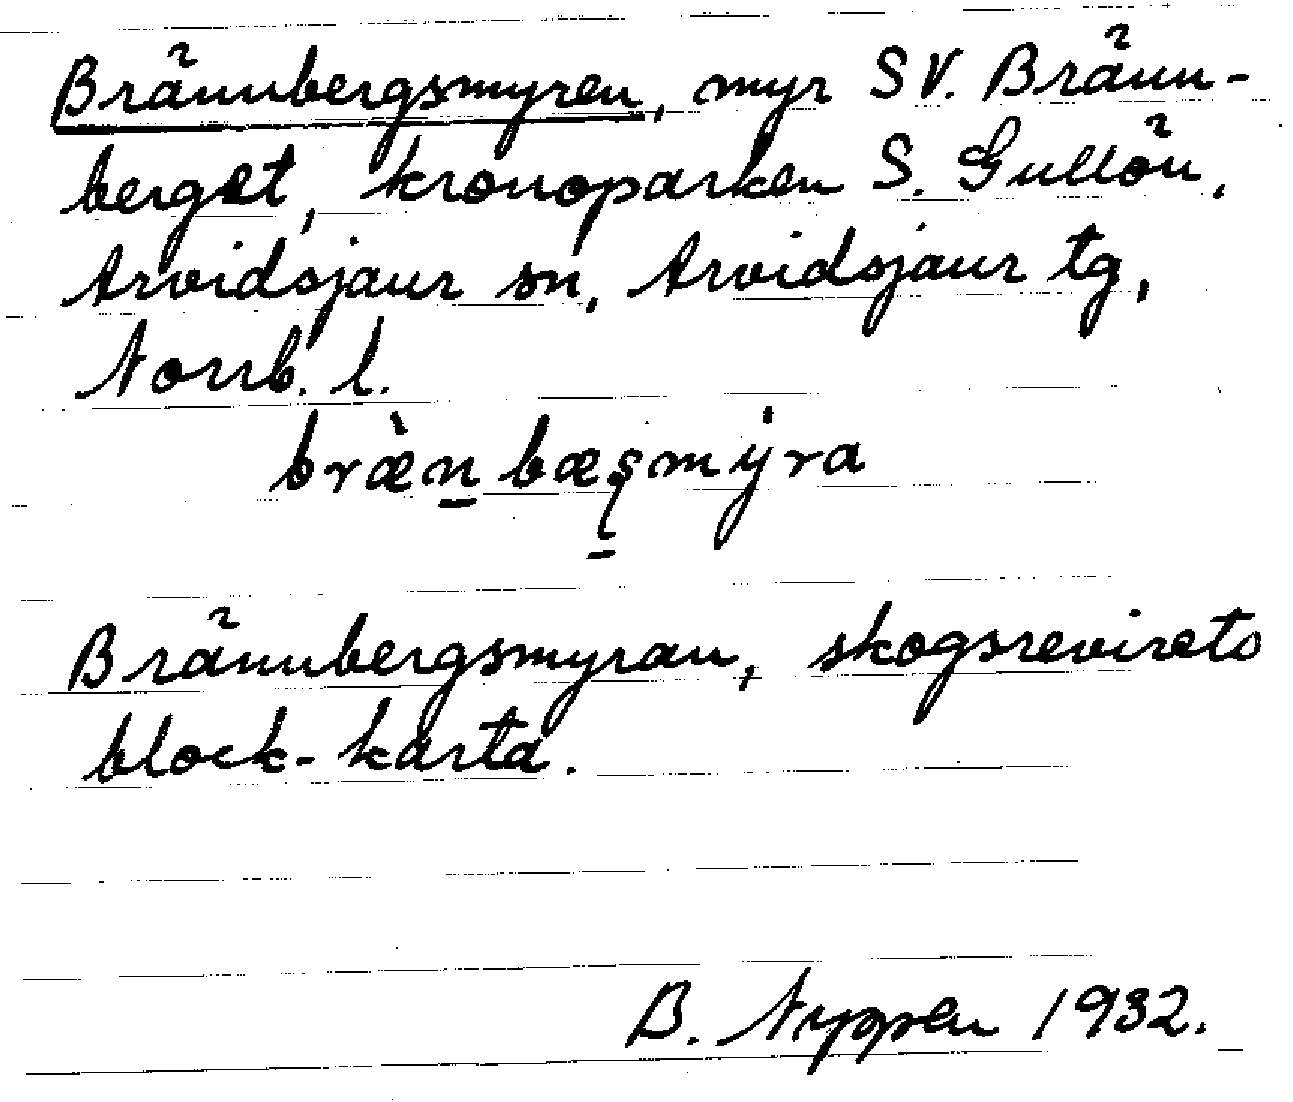 Brännbergsmyren, myr SV. Bränn-
berget, kronoparken S. Gullön,
Arvidsjaur sn, Arvidsjaur tg,
Norrb. l.
bræ̀n̲bæʂ̲mýra
Brännbergsmyran, skogsrevirets
block-karta.
B. Nyppen 1932.